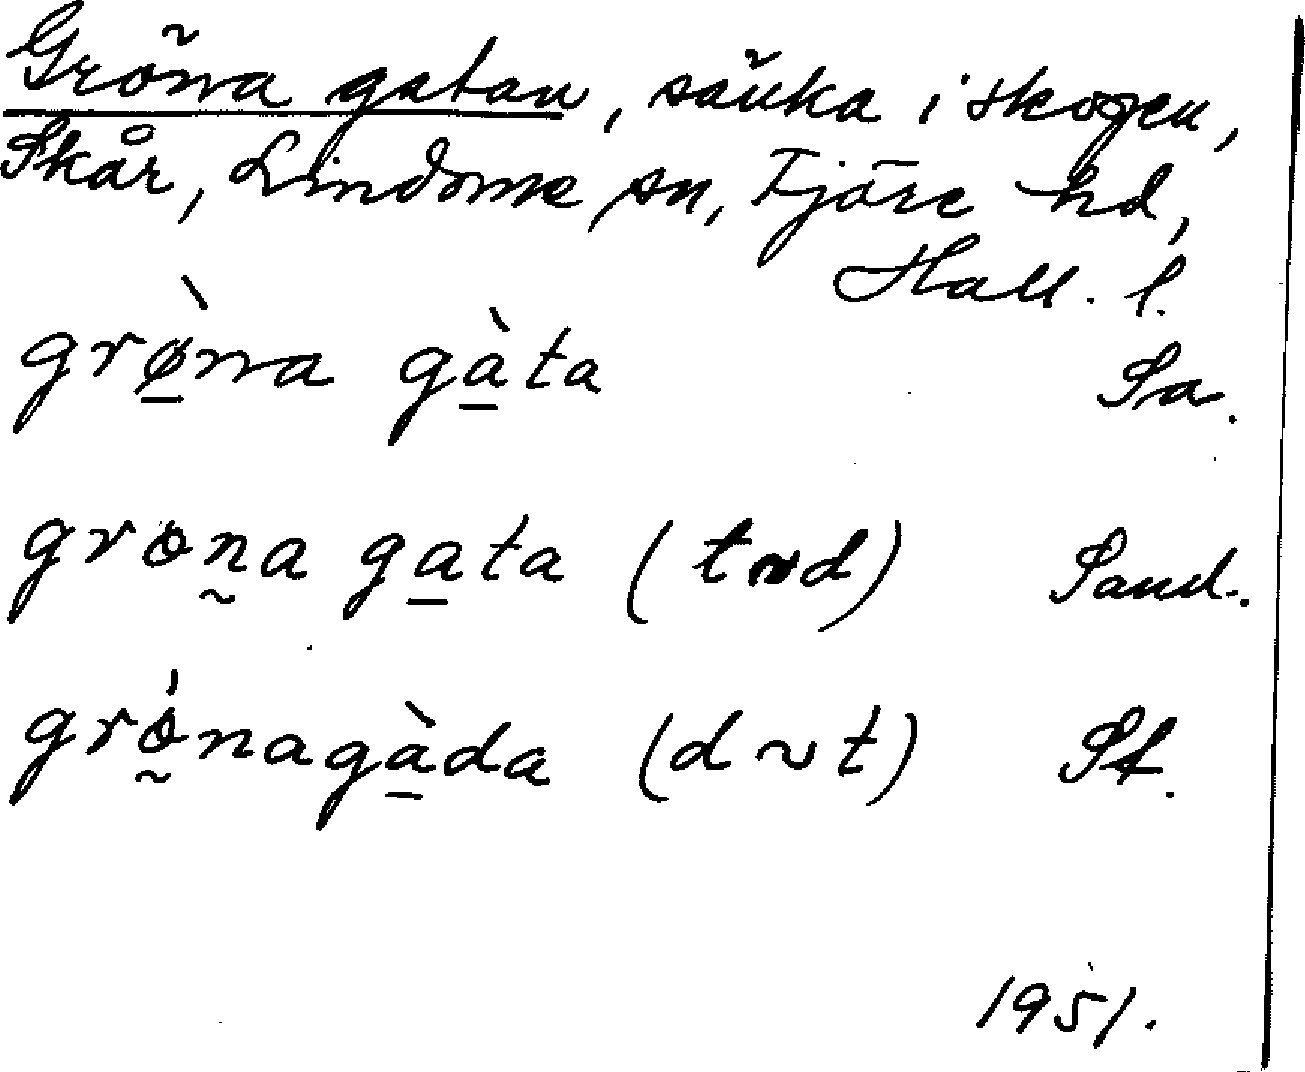 Gröna gatan, sänka i skogen,
Skår, Lindome sn, Fjäre hd,
Hall. l.
grø̠̀na gà̠ta Sa.
grön̰a ga̠ta (t~d) Sand.
grö̰́nagà̠da (d~t) Sf.
1951.